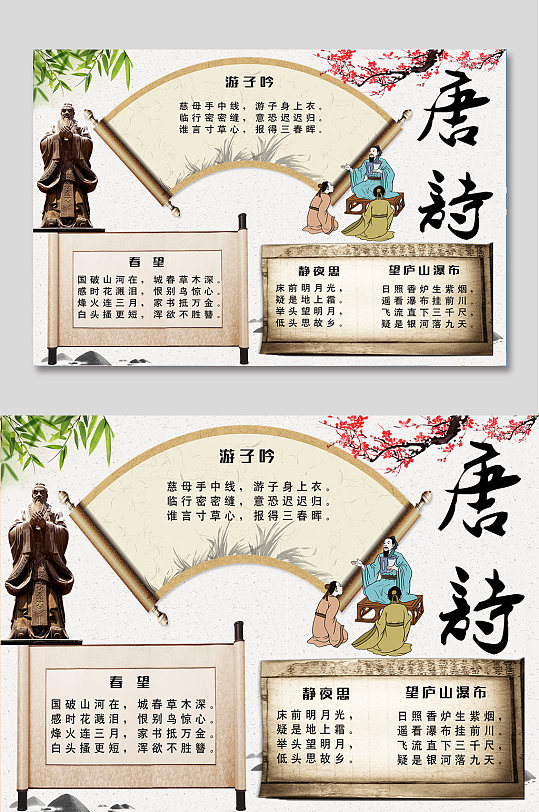 唐詩
游子吟
慈母手中线，游子身上衣。
临行密密缝，意恐迟迟归。
谁言寸草心，报得三春晖。
春望
国破山河在，城春草木深。
感时花溅泪，恨别鸟惊心。
烽火连三月，家书抵万金。
白头搔更短，浑欲不胜簪。
静夜思
床前明月光，
疑是地上霜。
举头望明月，
低头思故乡。
望庐山瀑布
日照香炉生紫烟，
遥看瀑布挂前川。
飞流直下三千尺，
疑是银河落九天。
唐詩
游子吟
慈母手中线，游子身上衣。
临行密密缝，意恐迟迟归。
谁言寸草心，报得三春晖。
春望
国破山河在，城春草木深。
感时花溅泪，恨别鸟惊心。
烽火连三月，家书抵万金。
白头搔更短，浑欲不胜簪。
静夜思
床前明月光，
疑是地上霜。
举头望明月，
低头思故乡。
望庐山瀑布
日照香炉生紫烟，
遥看瀑布挂前川。
飞流直下三千尺，
疑是银河落九天。